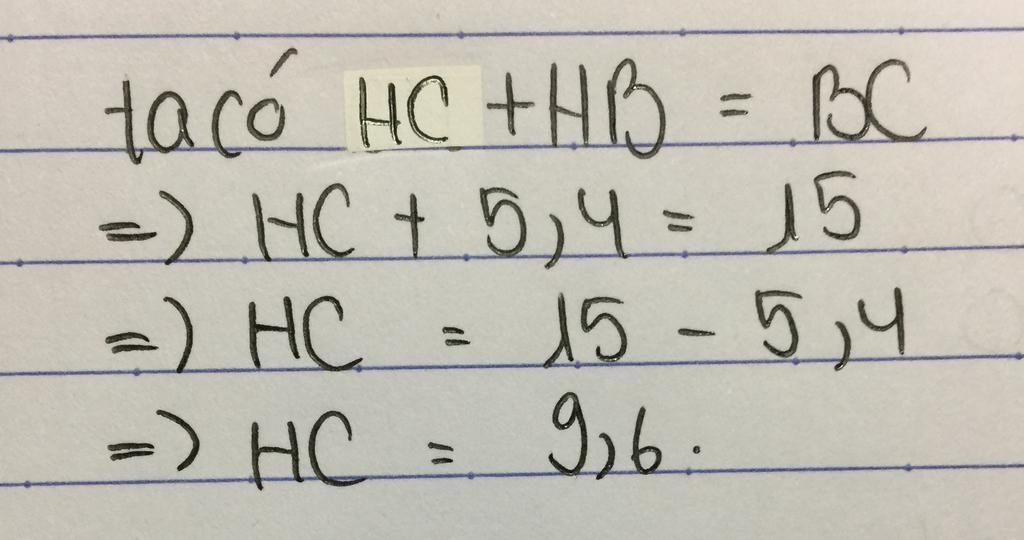 ta có HC + HB = BC
=> HC + 5,4 = 15
=> HC = 15 - 5,4
=> HC = 9,6.